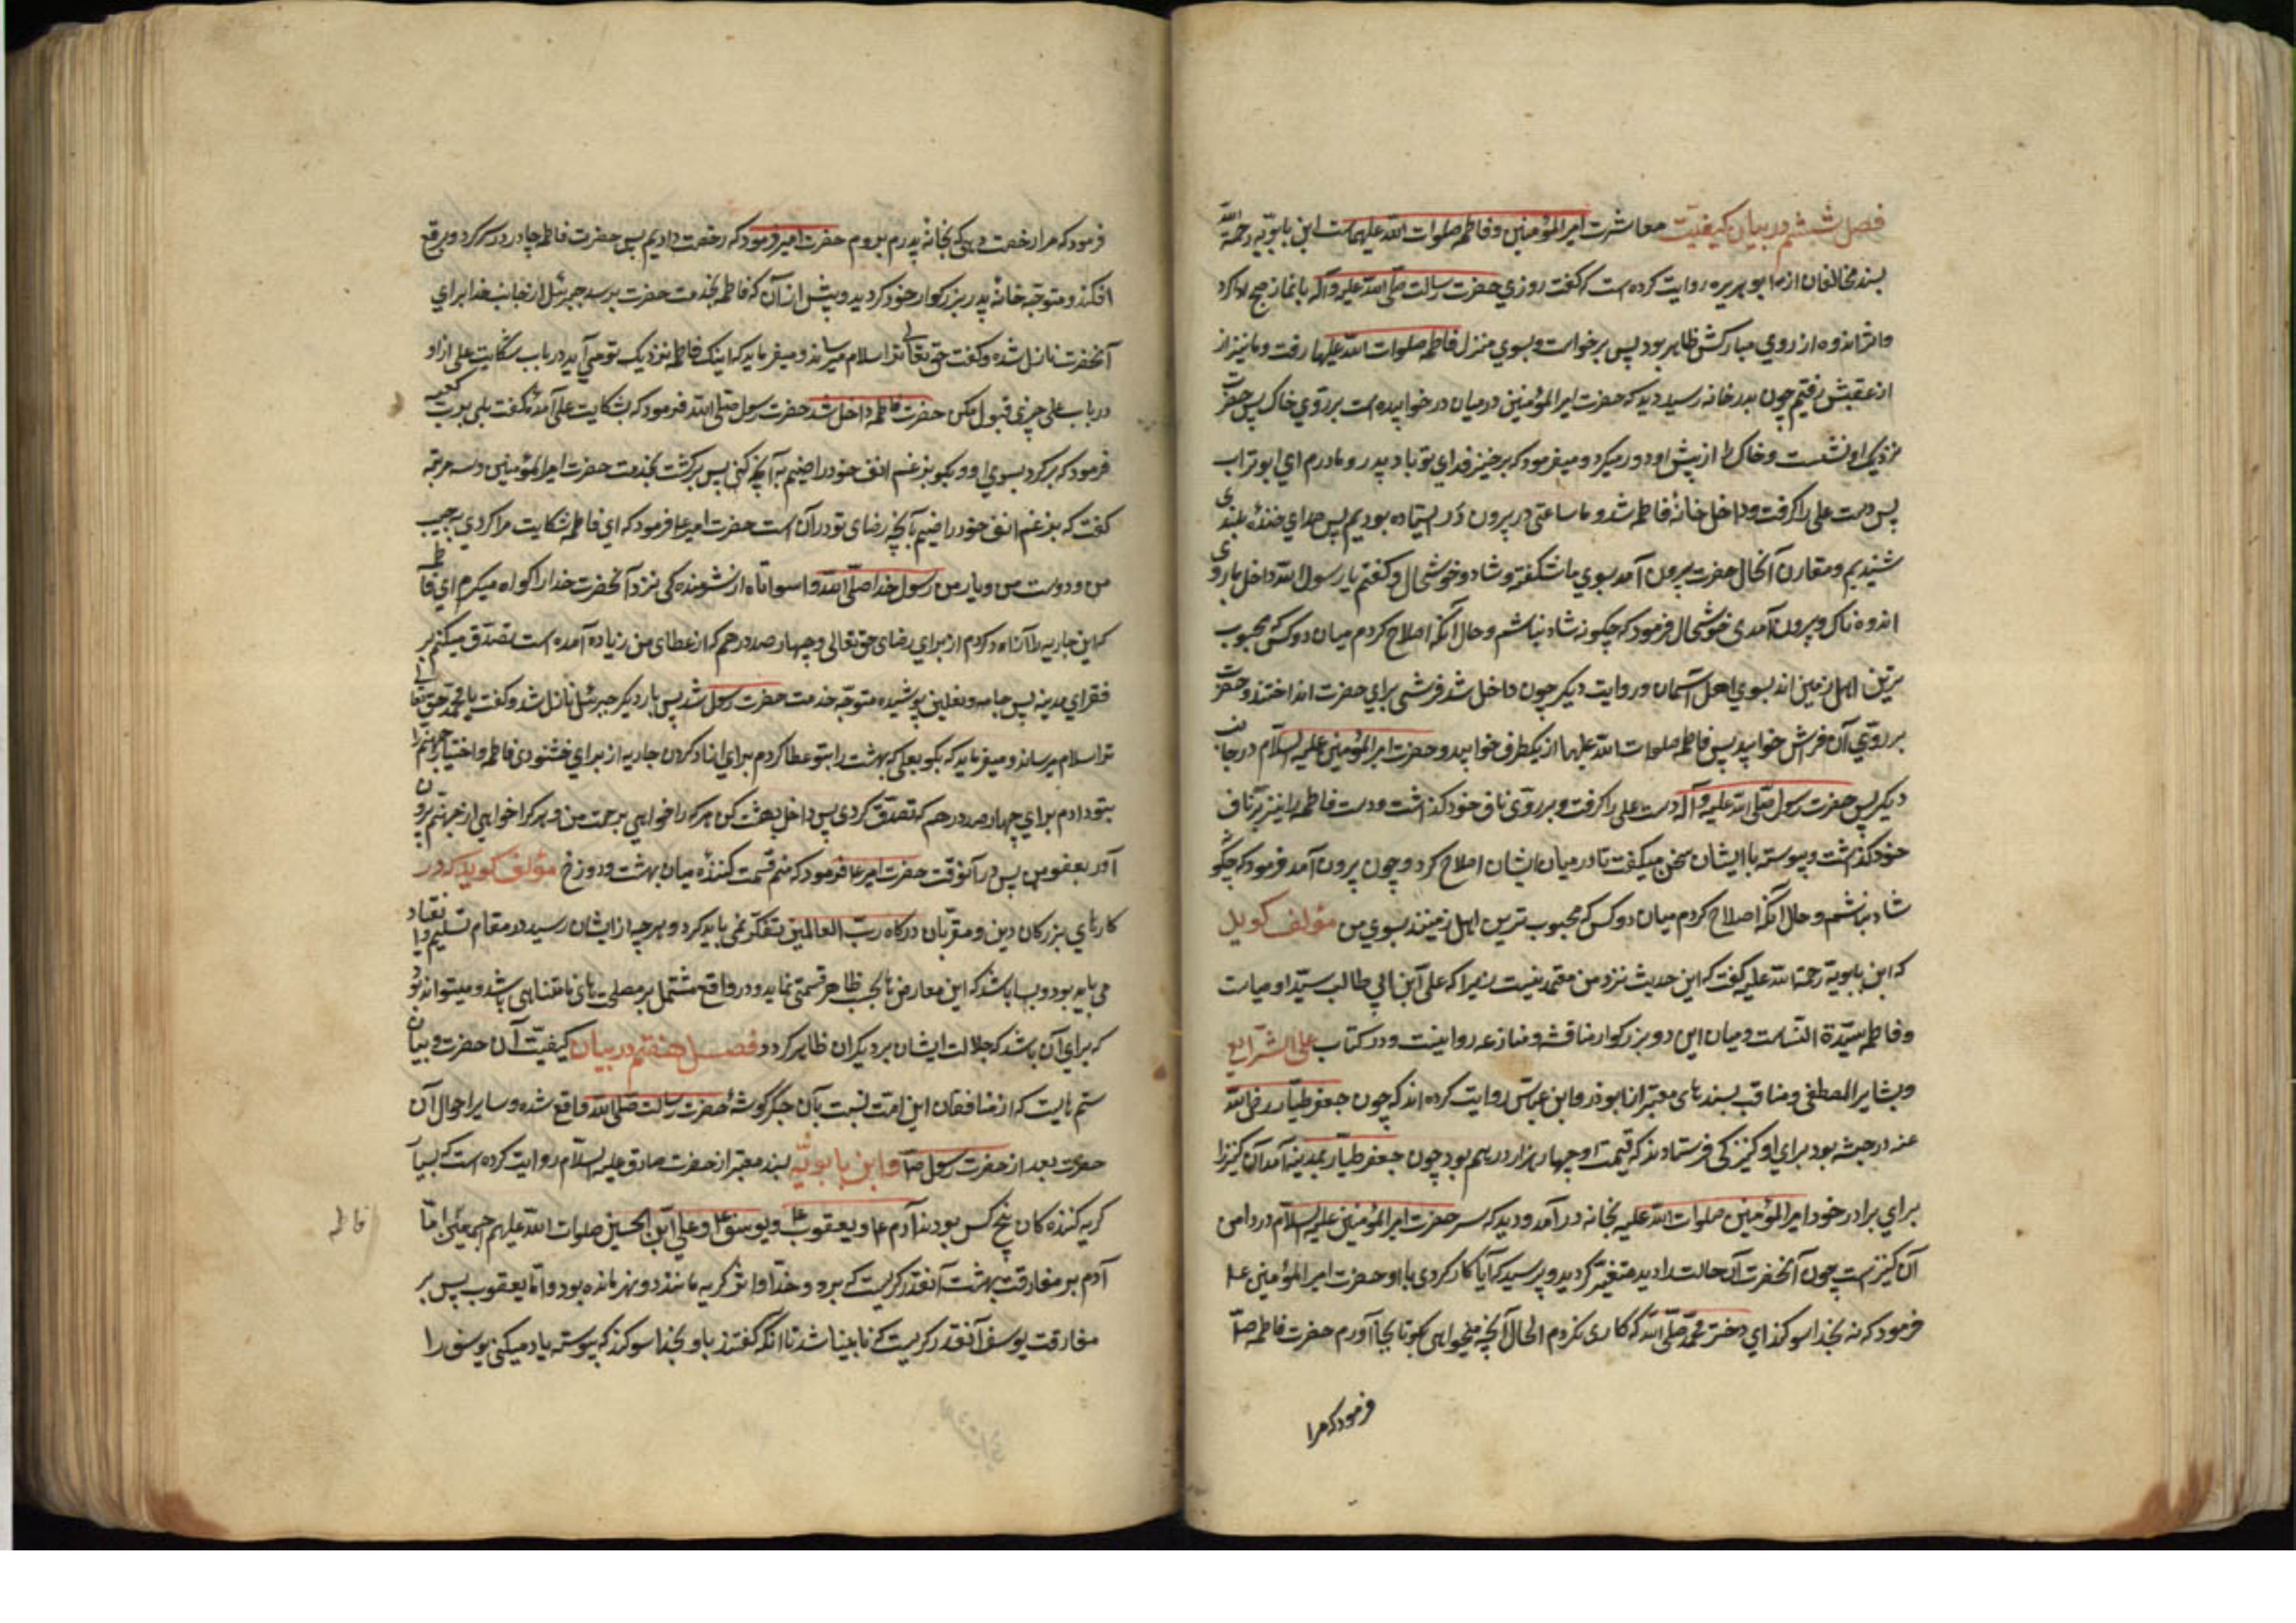 فصل ششم در بیان کیفیّت معاشرت امیرالمؤمنین و فاطمه صلوات الله علیهماست ابن بابویه رحمة الله
بسند مخالفان از ابو هریره روایت کرده است که گفت روزی حضرت رسالت صلّی الله علیه وآله نماز صبح ادا کرد
واثر اندوه از روی مبارکش ظاهر بود پس برخواست و بسوی منزل فاطمه صلوات الله علیها رفت و ما نیز از
از عقبش رفتیم چون بدر خانه رسید دید که حضرت امیرالمؤمنین در میان در خوابیده است بر روی خاک پس حضرت
نزدیک او نشست و خاک را از پشت او دور میکرد و میفرمود که برخیز فدای تو باد پدر و مادرم ای ابوتراب
پس دست علی را گرفت و داخل خانهٔ فاطمه شد و ما ساعتی در بیرون در ایستاده بودیم پس صدای خندهٔ بلندی
شنیدیم و مقارن آنحال حضرت بیرون آمد بسوی ما شکفته و شاد و خوشحال و گفتم یا رسول الله داخل با روی
اندوه ناک و بیرون آمدی خوشحال فرمود که چگونه شاد نباشم و حال آنکه اصلاح کردم میان دو کس که محبوب
ترین اهل زمین اند بسوی اهل آسمان و روایت دیگر چون داخل شد فرشی برای حضرت انداختند و حضرت
بر روی آن فرش خوابید پس فاطمه صلوات الله علیها از یکطرف خوابید و حضرت امیرالمؤمنین علیه السلام در جانب
دیگر پس حضرت رسول صلّی الله علیه وآله دست علی را گرفت و بر روی ناف خود گذاشت و دست فاطمه را نیز بر ناف
خود گذاشت و پیوسته با ایشان سخن میگفت تا در میان ایشان اصلاح کرد و چون بیرون آمد فرمود که چگونه
شاد نباشم و حال آنکه اصلاح کردم میان دو کس که محبوب ترین اهل زمینند بسوی من مؤلف گوید
که ابن بابویه رحمة الله علیه گفت که این حدیث نزد من معتمد نیست زیرا که علی ابن ابی طالب سیّد اوصیاست
و فاطمه سیّدة النّساست و میان این دو بزرگوار مناقشه و منازعه روا نیست و در کتاب علل الشرایع
و بشایر المصطفی و مناقب بسند های معتبر از ابوذر و ابن عبّاس روایت کرده اند که چون جعفر طیّار رضی الله
عنه در حبشه بود برای او کنیزکی فرستادند که قیمت او چهار هزار درهم بود چون جعفر طیّار بمدینه آمد آن کنیز را
برای برادر خود امیرالمؤمنین صلوات الله علیه بخانه در آمد و دید که سر حضرت امیرالمؤمنین علیه السلام در دامن
آن کنیز است چون آنحضرت آن حالت را دید متغیّر گردید و پرسید که آیا کار کردی با او حضرت امیرالمؤمنین ع
فرمود که نه بخدا سوگند ای دختر محمّد صلّی الله که کاری نکردم الحال آنچه میخواهی بگو تا بجا آورم حضرت فاطمه ص
فرمود که مرا
فرمود که مرا رخصت دهی که بخانهٔ پدرم بروم حضرت امیر فرمود که رخصت دادیم پس حضرت فاطمه چادر در سر کرد و برقع
افکند و متوجّه خانهٔ پدر بزرگوار خود گردید و پیش از آن که فاطمه بخدمت حضرت برسد جبرئیل از جانب خدا برای
آنحضرت نازل شده و گفت حق تعالی ترا سلام میرساند و میفرماید که اینک فاطمه نزدیک تو می آید در باب شکایت علی از او
در باب علی چیزی قبول مکن حضرت فاطمه داخل شد حضرت رسول صلّی الله فرمود که بشکایت علی آمدهٔ گفت بلی برب کعبه
فرمود که برگرد بسوی او و بگو برغم انف خود راضیم به آنچه کنی پس برگشت بخدمت حضرت امیرالمؤمنین و سه مرتبه
گفت که برغم انف خود راضیم بآنچه رضای تو در آن است حضرت امیر ع فرمود که ای فاطمه شکایت مرا کردی به حبیب
من و دوست من و یار من رسول خدا صلّی الله واسواتاه از شرمندگی نزد آنحضرت خدا را گواه میگیرم ای فاطمه
که این جاریه را آزاد کردم از برای رضای حق تعالی و چهارصد درهم که از عطای من زیاده آمده است تصدّق میکنم بر
فقرای مدینه پس جامه و نعلین پوشیده متوجّه خدمت حضرت رسول شد پس بار دیگر جبرئیل نازل شد و گفت یا محمّد حق تعالی
ترا سلام میرساند و میفرماید که بگو بعلی که بهشت را بتو عطا کردم برای ازاد کردن جاریه از برای خشنودی فاطمه و اختیار جهنم را
بتو دادم برای چهارصد درهم که تصدّق کردی پس داخل بهشت کن هر که را خواهی برحمت من و هر که را خواهی از جهنم برون
آور بعفو من پس در آنوقت حضرت امیر ع فرمود که منم قسمت کنندهٔ میان بهشت و دوزخ مؤلف گوید که در
کارهای بزرگان دین و مقرّبان درگاه ربّ العالمین تفکّر نمی باید کرد و هر چه از ایشان رسید در مقام تسلیم و انقیاد
می باید بود و بسا باشد که این معارض بحسب ظاهر قسمتی نماید و در واقع مشتمل بر مصلحت های نامتناهی باشد و میتواند بود
که برای آن باشد که جلالت ایشان بر دیگران ظاهر گردد فصل هفتم در بیان کیفیّت آن حضرت و بیان
ستم هایست که از منافقان این امّت نسبت بآن جگر گوشهٔ حضرت رسالت صلّی الله واقع شده و سایر احوال آن
حضرت بعد از حضرت رسول ص و ابن بابویه بسند معتبر از حضرت صادق علیه السلام روایت کرده است که بسیار
گریه کننده کان پنج کس بودند آدم ع و یعقوب ع و یوسف ع و علی ابن الحسین صلوات الله علیهم اجمعین امّا
فاطمه
آدم بر مفارقت بهشت آنقدر گریست که برو و خدّ او اثر گریه مانند دو نهر مانده بود و امّا یعقوب پس بر
مفارقت یوسف آنقدر گریست که نابینا شد تا آنکه گفتند باو بخدا سوگند که پیوسته یاد میکنی یوسف را